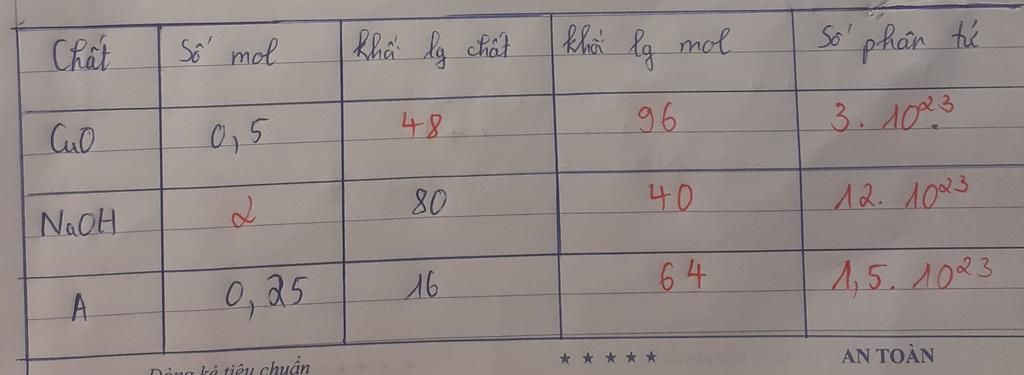 Chất Số mol Khối lg chất khối lg mol Số phân tử
CuO 0,5 48 96 3. 10²³
NaOH 2 80 40 12. 10²³
A 0,25 16 64 1,5. 10²³
Dòng kẻ tiêu chuẩn ★ ★ ★ ★ ★ AN TOÀN